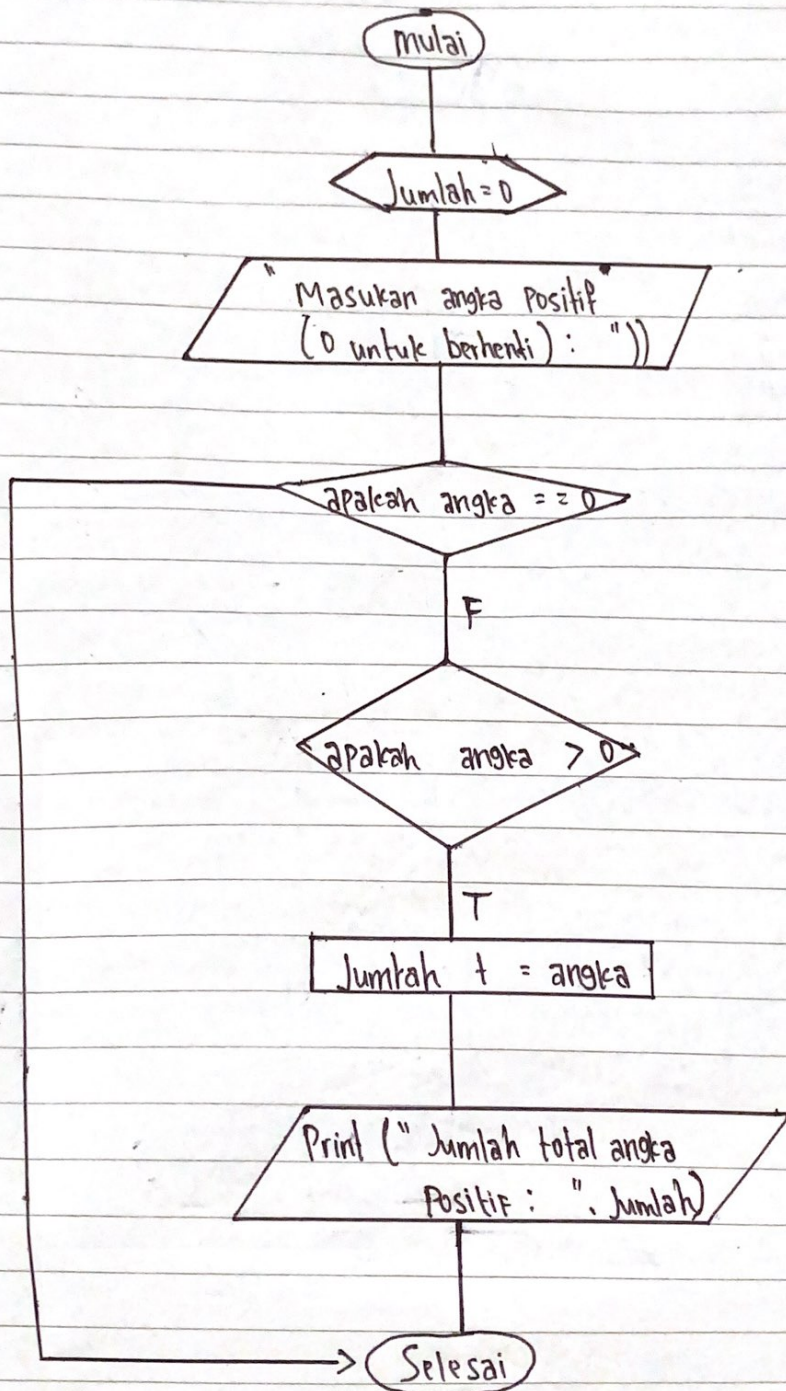 mulai
Jumlah = 0
" Masukan angka positif
(0 untuk berhenti) : "))
apakah angka == 0
F
apakah angka > 0
T
Jumlah + = angka
Print ("Jumlah total angka
Positif : ", Jumlah)
Selesai